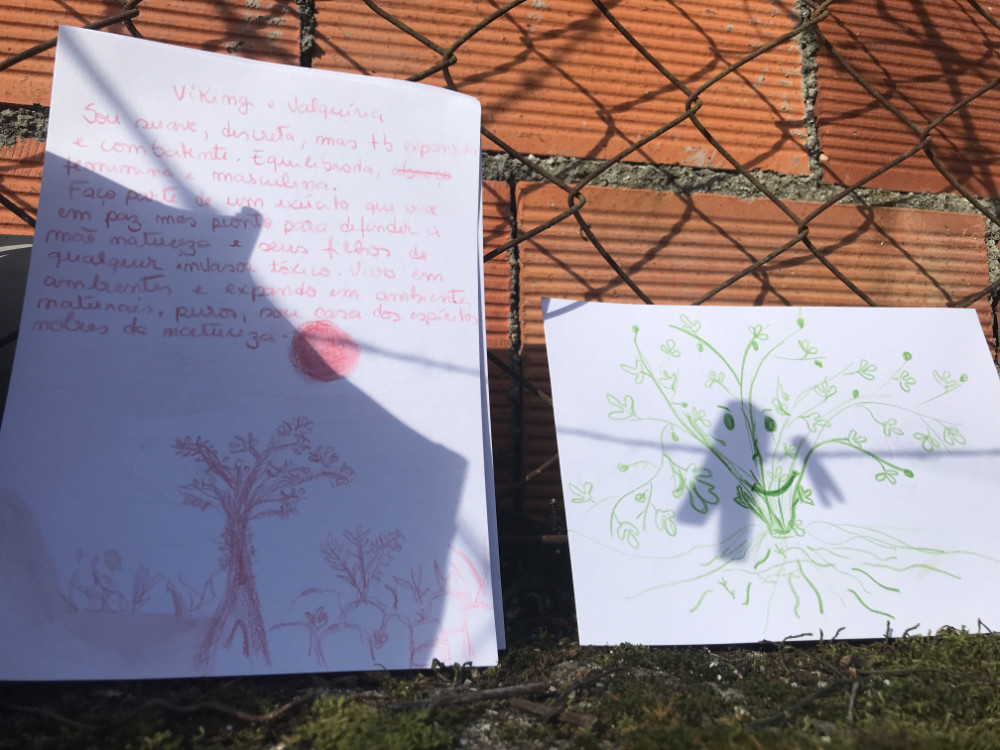 Viking e Valquíria
Sou suave, discreta, mas tb expansiva
e combatente. Equilibrada,
feminina e masculina.
Faço parte de um exército que vive
em paz mas pronto para defender a
mãe natureza e seus filhos de
qualquer invasor tóxico. Vivo em
ambientes e expando em ambientes
naturais, puros, sou casa dos espíritos
nobres da natureza.